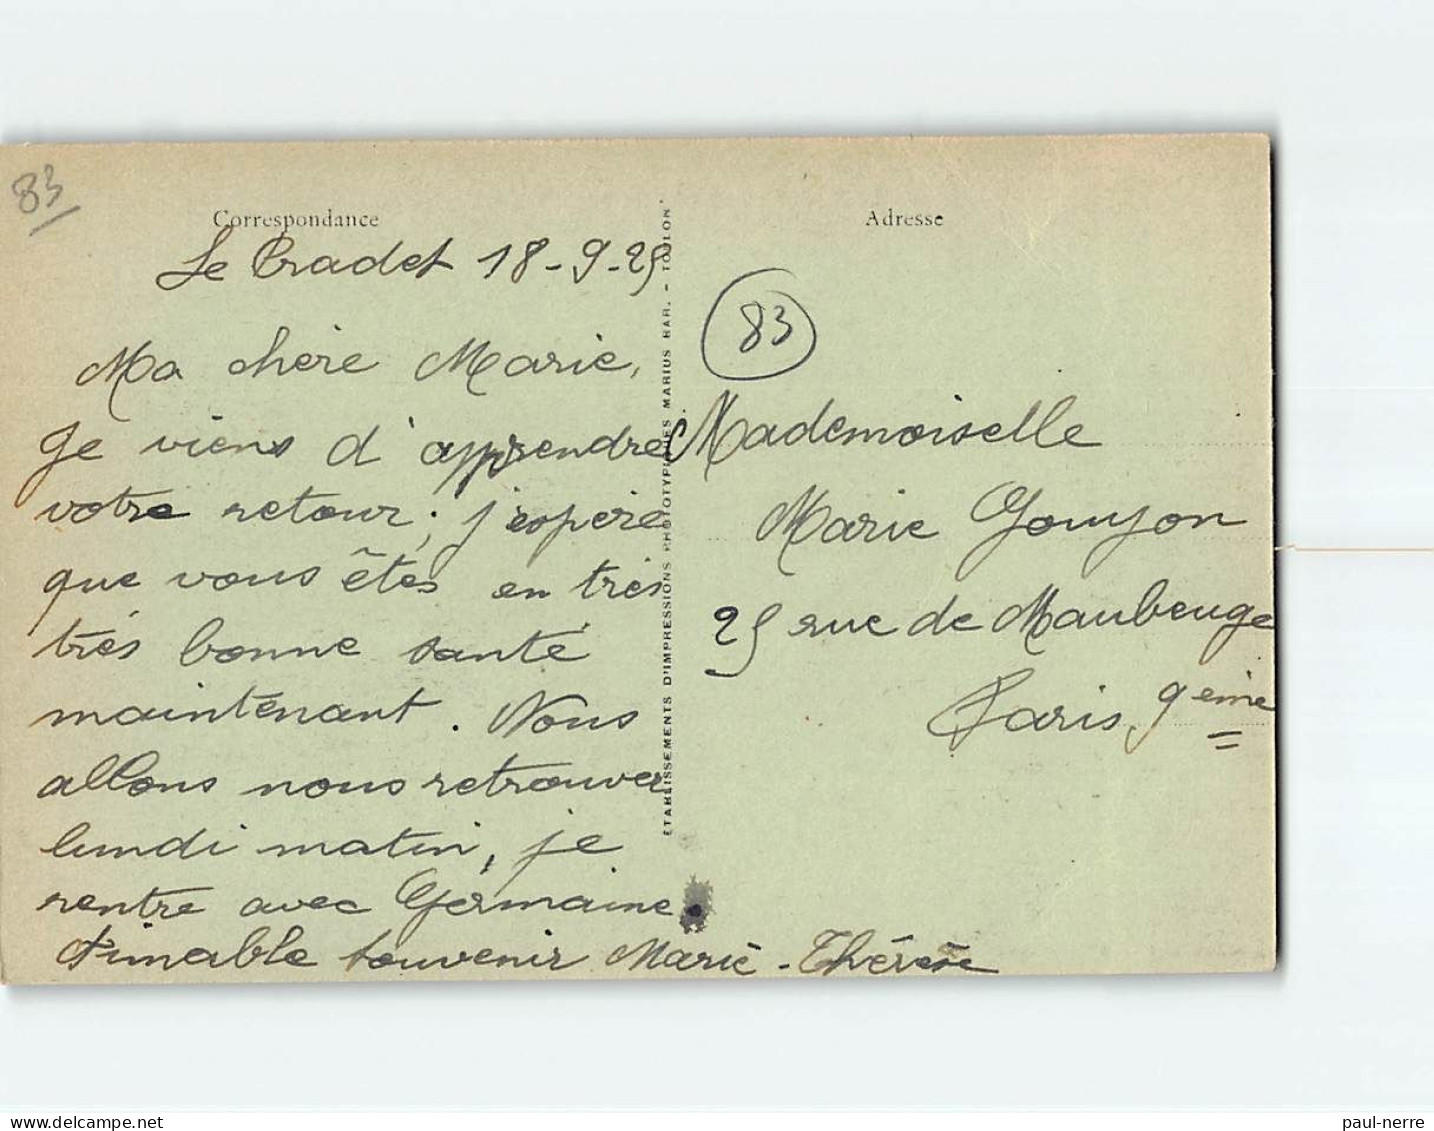 83
Correspondance
Le Pradet 18-9-25
Ma chère Marie,
Je viens d'apprendre
votre retour; j'espère
que vous êtes en très
très bonne santé
maintenant. Nous
allons nous retrouver
lundi matin, je
rentre avec Germaine.
Aimable souvenir Marie-Thérèse
ETABLISSEMENTS D'IMPRESSIONS PHOTOTYPIQUES MARIUS BAR. - TOULON
Adresse
83
Mademoiselle
Marie Goujon
25 rue de Maubeuge
Paris 9eme
delcampe.net
paul-nerre